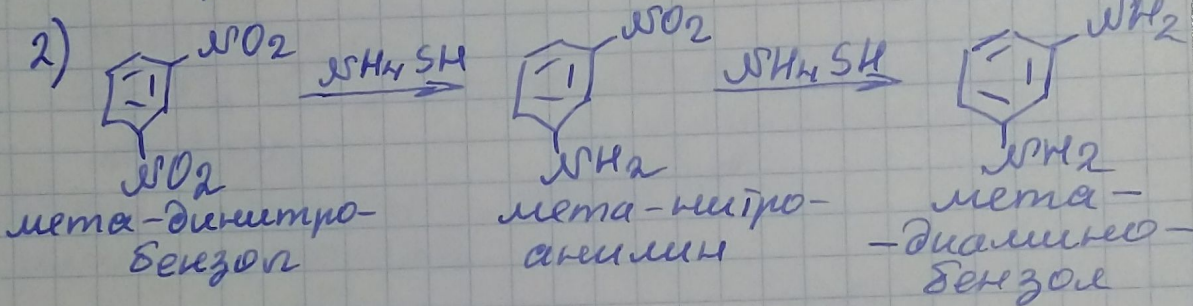 2)
NO2
NO2
NH4SH
NO2
NH2
NH4SH
NH2
NH2
мета-динитро-
бензол
мета-нитро-
анилин
мета-
-диамино-
бензол